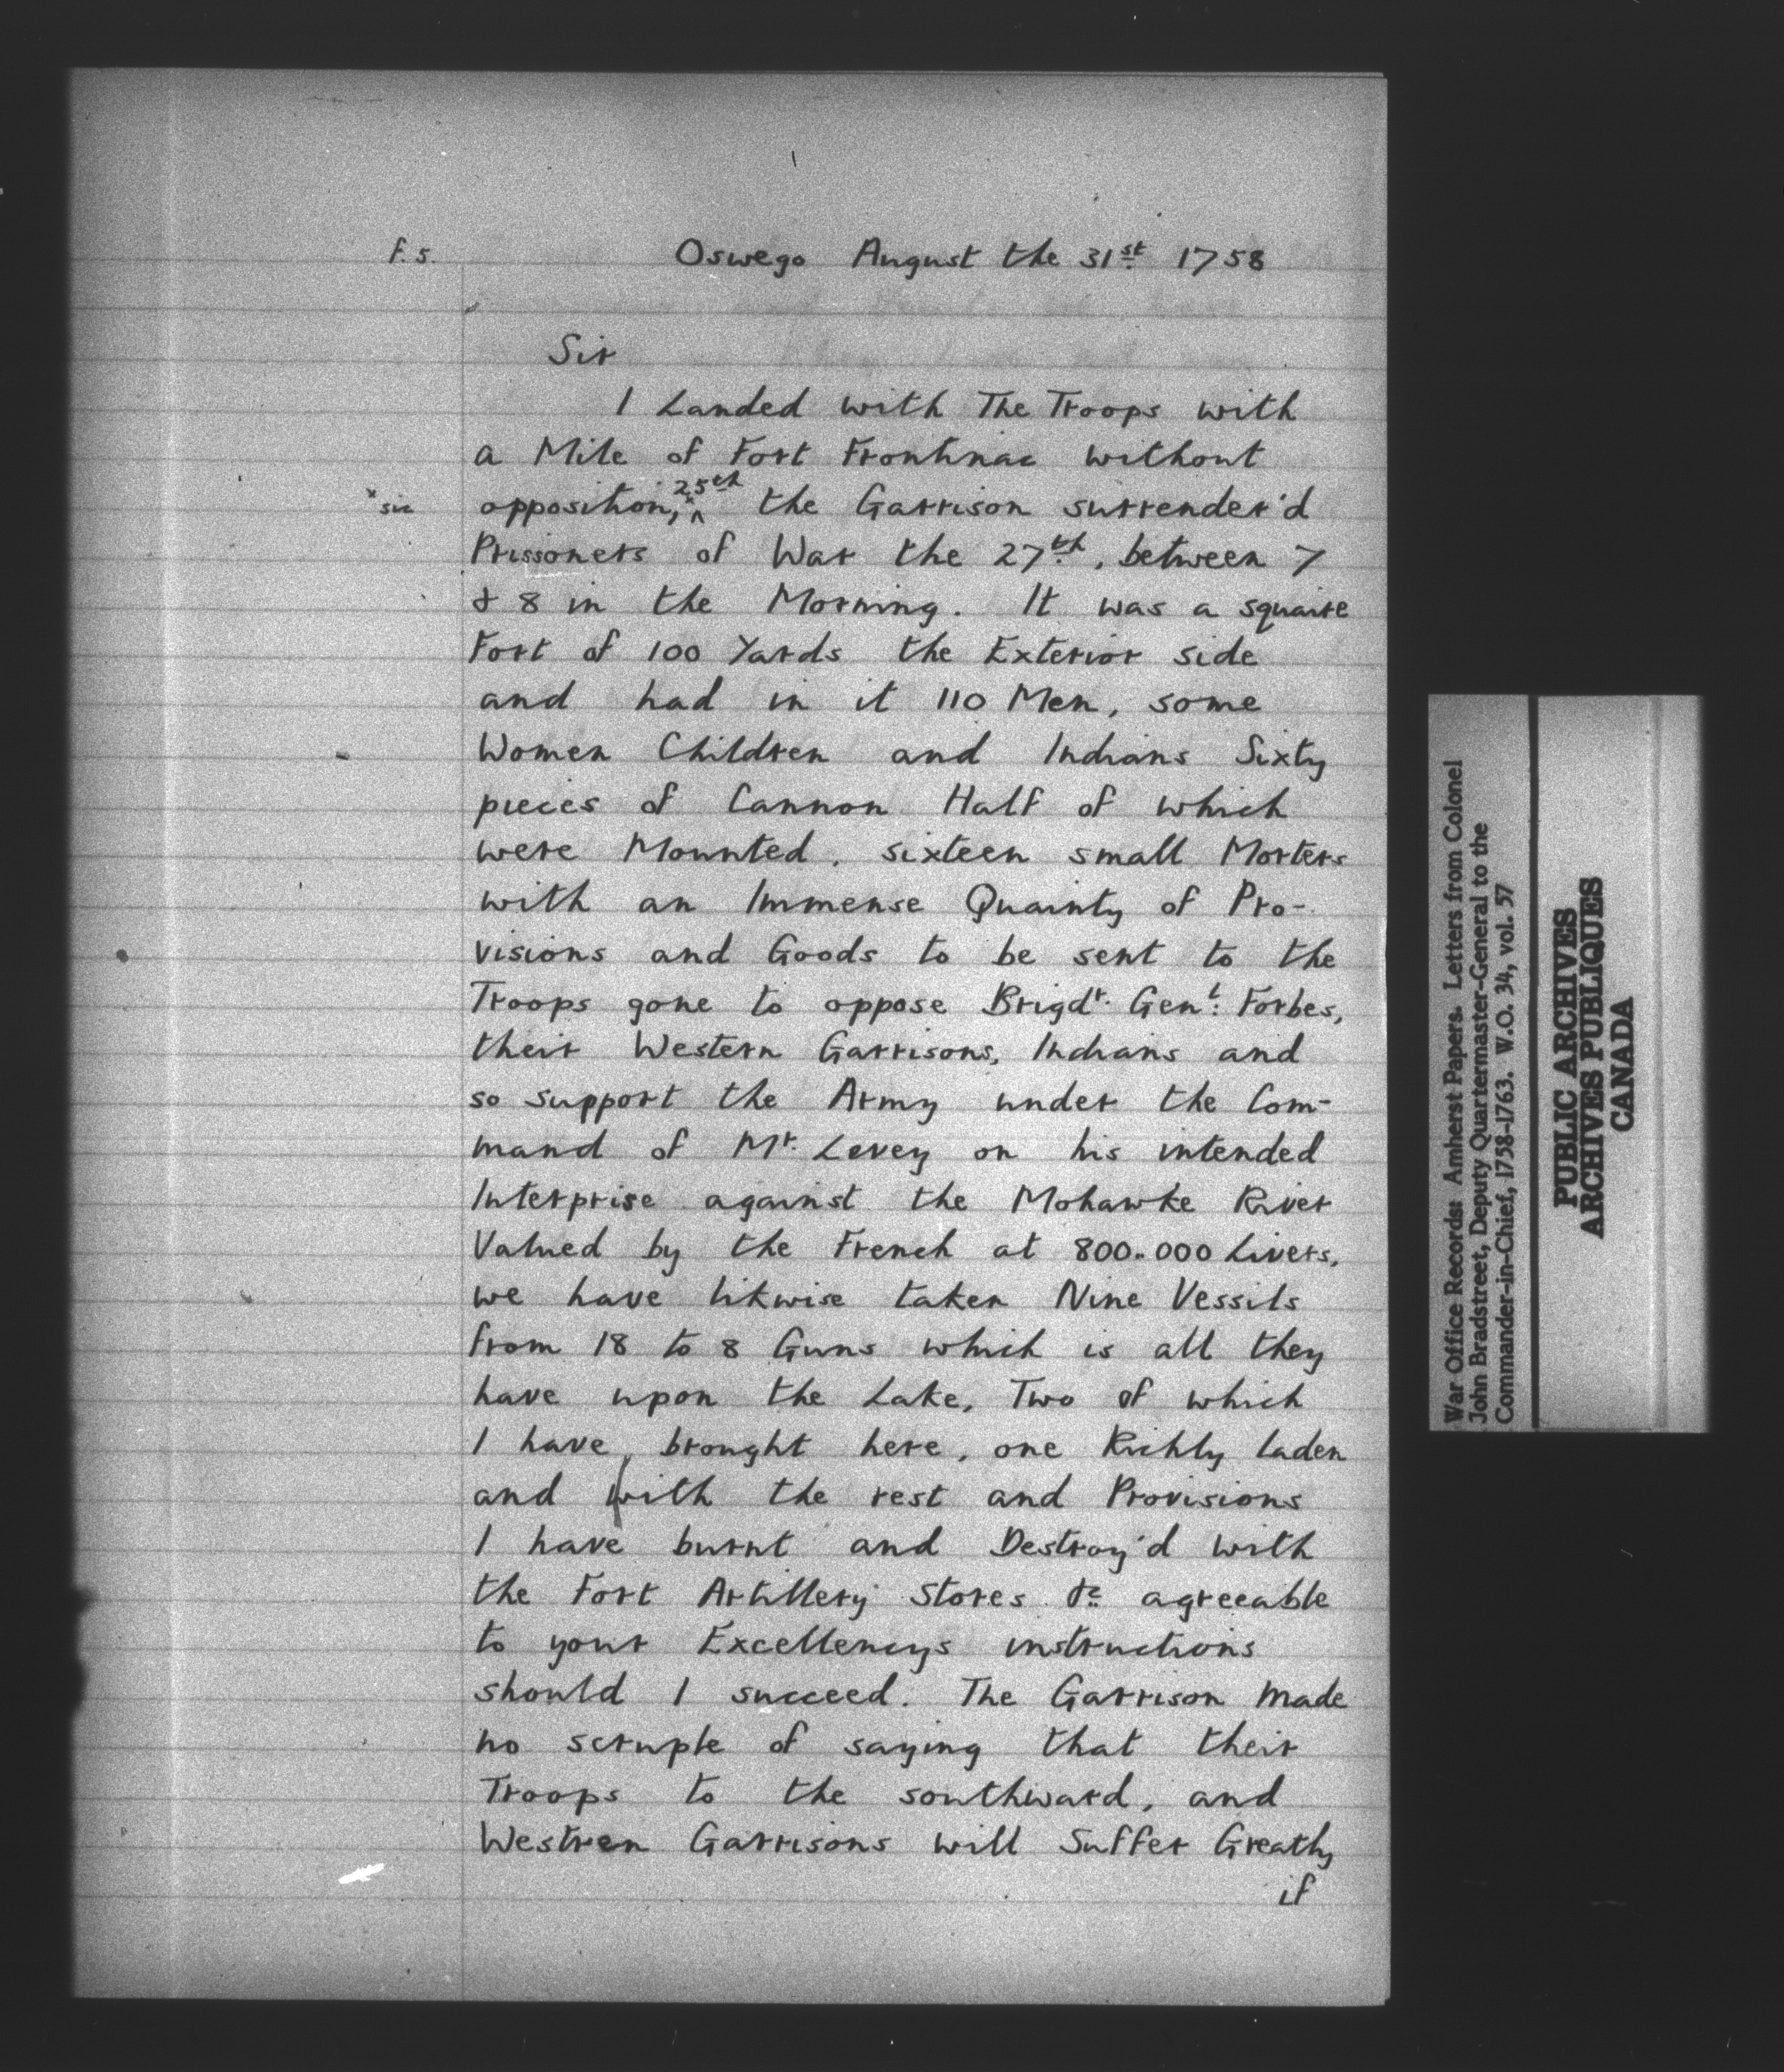 f. 5.
Oswego August the 31st 1758
Sir
I Landed with The Troops with
a Mile of Fort Frontinac without
opposition, ^ 25th the Garrison surrender'd
x sic
Prissoners of War the 27th, between 7
& 8 in the Morning. It was a squaire
Fort of 100 Yards the Exterior side
and had in it 110 Men, some
Women Children and Indians Sixty
pieces of Cannon Half of which
were Mounted, sixteen small Morters
with an Immense Quainty of Pro-
visions and Goods to be sent to the
Troops gone to oppose Brigdr. Genl: Forbes,
their Western Garrisons, Indians and
so support the Army under the Com-
mand of Mr. Levey on his intended
Interprise against the Mohawke River
Valued by the French at 800.000 Livers,
we have likwise taken Nine Vessils
from 18 to 8 Guns which is all they
have upon the Lake, Two of which
I have brought here, one Richly laden
and with the rest and Provisions
I have burnt and Destroy'd with
the Fort Artillery Stores &c agreeable
to your Excellencys instructions
should I succeed. The Garrison Made
no scruple of saying that their
Troops to the southward, and
Westren Garrisons will Suffer Greatly
if
War Office Records: Amherst Papers. Letters from Colonel
John Bradstreet, Deputy Quartermaster-General to the
Commander-in-Chief, 1758-1763. W.O. 34, vol. 57
PUBLIC ARCHIVES
ARCHIVES PUBLIQUES
CANADA